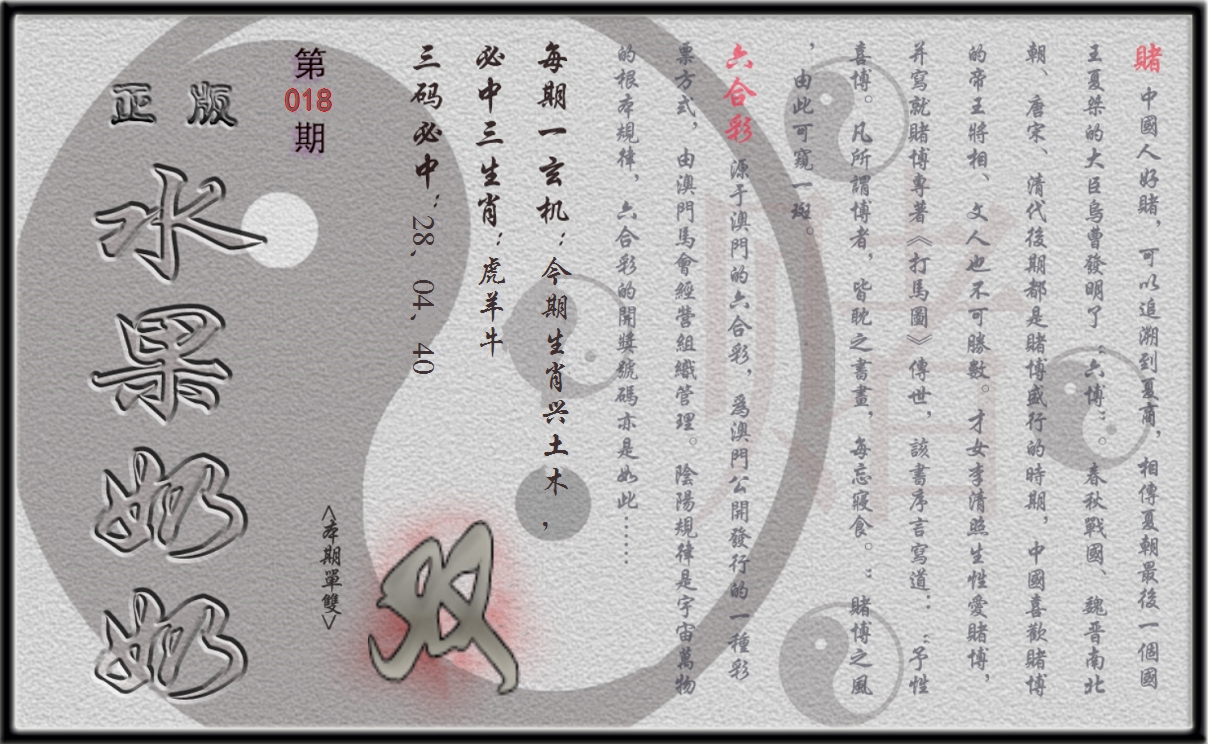 賭 中國人好賭，可以追溯到夏商，相傳夏朝最後一個國
王夏桀的大臣烏曹發明了“六博”。春秋戰國、魏晋南北
朝、唐宋、清代後期都是賭博盛行的時期，中國喜歡賭博
的帝王將相、文人也不可勝數。才女李清照生性愛賭博，
并寫就賭博專著《打馬圖》傳世，該書序言寫道：“予性
喜博。凡所謂博者，皆耽之晝，每忘寢食。：賭博之風
，由此可窺一斑。
六合彩 源于澳門的六合彩，爲澳門公開發行的一種彩
票方式，由澳門馬會經營組織管理。陰陽規律是宇宙萬物
的根本規律，六合彩的開獎號碼亦是如此……
每期一玄机：今期生肖兴土木，
必中三生肖：虎羊牛
三码必中：28、04、40
第
018
期
<本期單雙>
双
正版
水果奶奶
赌